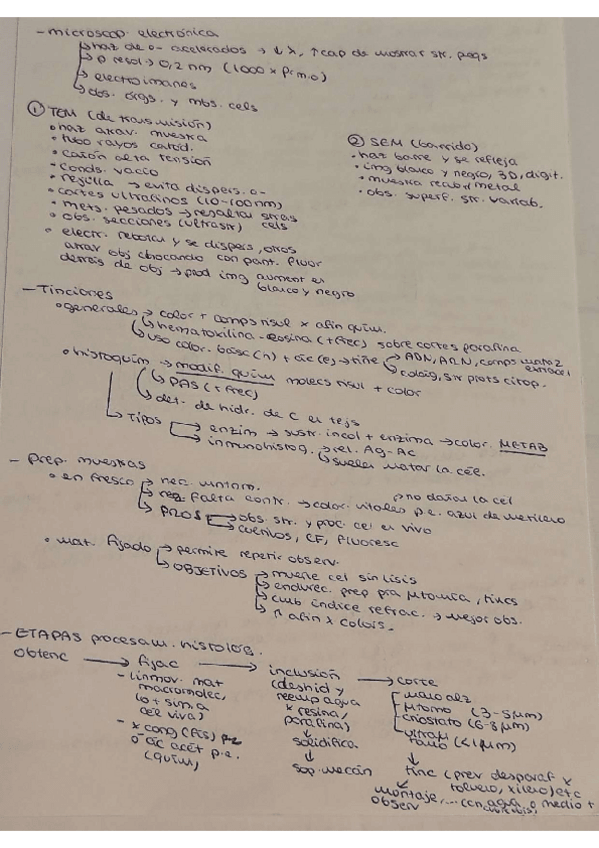 - microscop. electrónica
haz de e- acelerados → ↓ λ, ↑ cap de mostrar str. peqs
P resol → 0,2 nm (1000 x P. m.o)
electroimanes
obs. orgs. y mbs. cels
① TEM (de transmisión)
• haz atrav. muestra
• tubo rayos catód.
• cañón alta tensión
• conds. vacío
• rejilla → evita dispers. e-
• cortes ultrafinos (10-100nm)
• mets. pesados → resaltar stras
• obs. secciones (ultrastr) cels
• electr. rebotan y se dispers, otros
atrav obj chocando con pant. fluor
detrás de obj → prod img aument en
blanco y negro
② SEM (barrido)
• haz barre y se refleja
• img blanco y negro, 3D, digit.
• muestra recubr metal
• obs. superf. str. variab.
- Tinciones
• generales → color + comps tisul x afin quím.
hematoxilina-eosina (+frec) sobre cortes parafina
uso color. básc (n) + ác (e) → tiñe ADN, ARN, comps matriz extracel
colág, str prots citop.
• histoquím → modif. quím molecs tisul + color
PAS (+frec)
det. de hidr. de C en tejs
Tipos
enzim → sustr. incol + enzima → color. METAB
inmunohistoq. → rel. Ag-Ac
suele matar la cél.
- Prep. muestras
• en fresco
nec. inmom.
reg. falta contr. → color. vitales p.e. azul de metileno
→ no dañar la cel
PROS → obs. str. y proc. cel en vivo
cultivos, CF, fluoresc
• mat. fijado → permite repetir observ.
OBJETIVOS → muerte cel sin lisis
endurec. prep pra μtomía, tincs
camb índice refrac. → mejor obs.
↑ afin x colors.
- ETAPAS procesam. histológ.
obtenc → fijac → inclusión → corte
- inmov. mat
macromolec,
lo + sim. a
cél viva)
- x cong (fís) p.e
o ác acét p.e.
(quím)
(deshid y
reemp agua
x resina,
parafina)
↓
solidifica
↓
sop. mecán
mano alz
μtomo (3-5μm)
criostato (6-8μm)
ultraμ
tomo (<1μm)
↓
tinc (prev desparaf x
tolueno, xileno) etc
montaje, ... (cn agua o medio +
observ